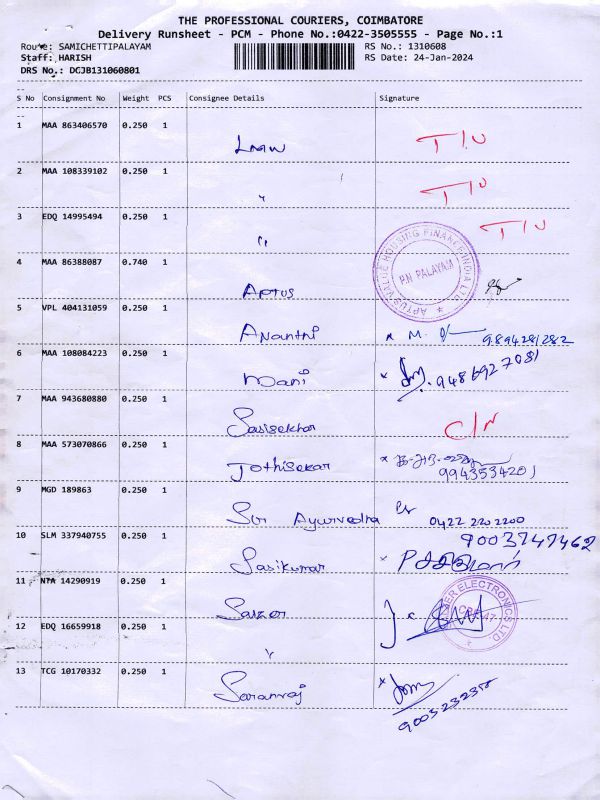 THE PROFESSIONAL COURIERS, COIMBATORE
Delivery Runsheet - PCM - Phone No.:0422-3505555 - Page No.:1
Route: SAMICHETTIPALAYAM RS No.: 1310608
Staff: HARISH RS Date: 24-Jan-2024
DRS No.: DCJB131060801
S No Consignment No Weight PCS Consignee Details Signature
1 MAA 863406570 0.250 1 LMW T/U
2 MAA 108339102 0.250 1 " T/U
3 EDQ 14995494 0.250 1 " T/U
APTUS VALUE HOUSING FINANCE INDIA LTD
P.N PALAYAM
4 MAA 86388087 0.740 1 Aptus
5 VPL 404131059 0.250 1 Ananthi x M. 9894281282
6 MAA 108084223 0.250 1 Mani x 9486927081
7 MAA 943680880 0.250 1 Sasisekhar C/N
8 MAA 573070866 0.250 1 Jothisekar x 9943534201
9 MGD 189863 0.250 1 Sir Ayurvedha 0422 220 2200
9003747462
10 SLM 337940755 0.250 1 Sasikumar x P சசிகுமார்
11 NTA 14290919 0.250 1 Salzer
ELECTRONICS LTD
12 EDQ 16659918 0.250 1 "
13 TCG 10170332 0.250 1 Saranraj x
9003232312